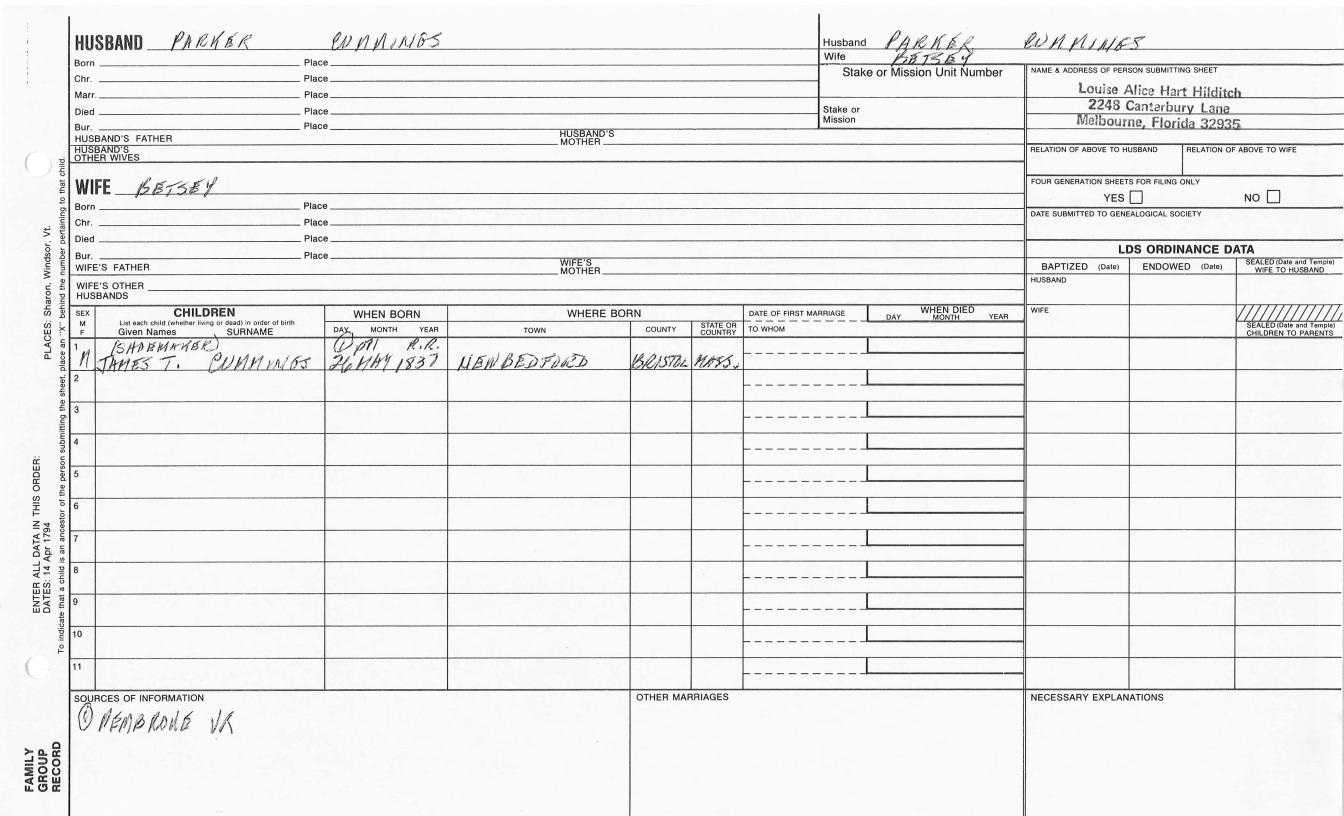 HUSBAND PARKER CUMMINGS
Born Place
Chr. Place
Marr. Place
Died Place
Bur. Place
HUSBAND'S FATHER HUSBAND'S MOTHER
HUSBAND'S OTHER WIVES
Husband PARKER CUMMINGS
Wife BETSEY
Stake or Mission Unit Number
Stake or Mission
NAME & ADDRESS OF PERSON SUBMITTING SHEET
Louise Alice Hart Hilditch
2248 Canterbury Lane
Melbourne, Florida 32935
RELATION OF ABOVE TO HUSBAND RELATION OF ABOVE TO WIFE
FOUR GENERATION SHEETS FOR FILING ONLY
YES NO
DATE SUBMITTED TO GENEALOGICAL SOCIETY
WIFE BETSEY
Born Place
Chr. Place
Died Place
Bur. Place
WIFE'S FATHER WIFE'S MOTHER
WIFE'S OTHER HUSBANDS
LDS ORDINANCE DATA
BAPTIZED (Date) ENDOWED (Date) SEALED (Date and Temple) WIFE TO HUSBAND
HUSBAND
WIFE
SEALED (Date and Temple) CHILDREN TO PARENTS
SEX M F
CHILDREN
List each child (whether living or dead) in order of birth
Given Names SURNAME
WHEN BORN
DAY MONTH YEAR
WHERE BORN
TOWN COUNTY STATE OR COUNTRY
DATE OF FIRST MARRIAGE
TO WHOM
WHEN DIED
DAY MONTH YEAR
1 (SHOEMAKER) ① R.R.
M JAMES T. CUMMINGS 26 MAY 1837 NEW BEDFORD BRISTOL MASS.
2
3
4
5
6
7
8
9
10
11
SOURCES OF INFORMATION
① PEMBROKE VR
OTHER MARRIAGES
NECESSARY EXPLANATIONS
PLACES: Sharon, Windsor, Vt.
ENTER ALL DATA IN THIS ORDER:
DATES: 14 Apr 1794
To indicate that a child is an ancestor of the person submitting the sheet, place an "X" behind the number pertaining to that child.
FAMILY
GROUP
RECORD